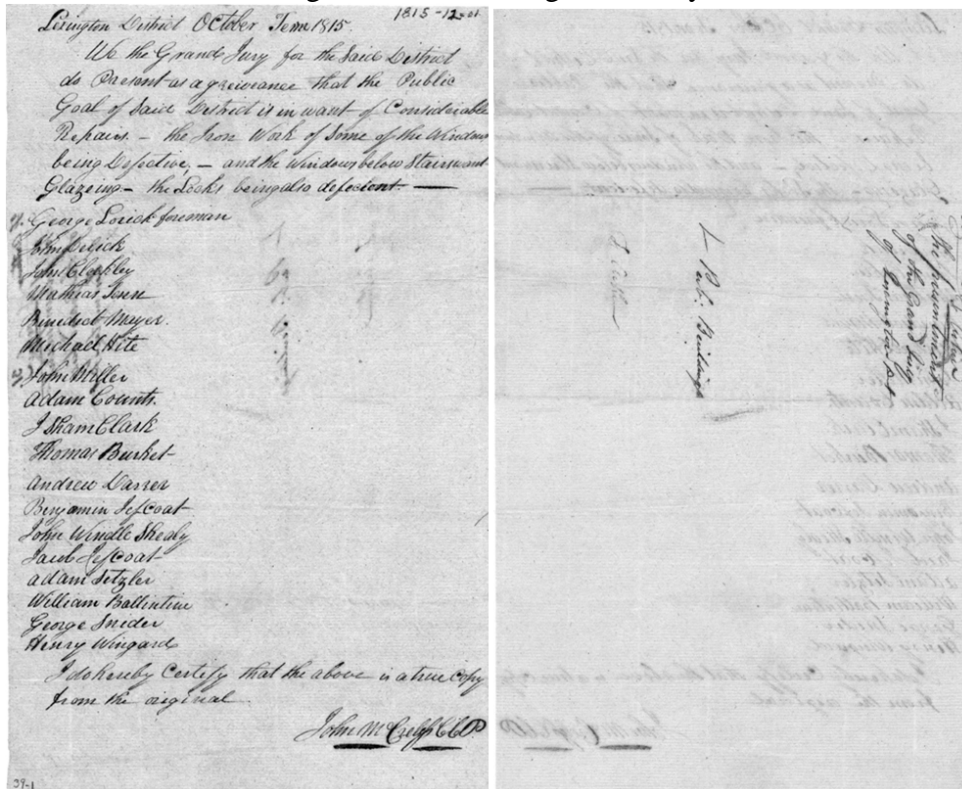 1815-12-01
Lexington District October Term 1815.
We the Grand Jury for the Said District
do Present as a greivance that the Public
Goal of Said District is in want of Considerable
Repairs. - the Iron Work of Some of the Windows
being Defective, - and the Windows below Stairs want
Glazeing - the Locks being also defecient
George Lorick foreman
John
John
Mathias
Benedict Mayer.
Michael Hite
John Miller
Adam Counts.
Isham Clark
Thomas Burket
Andrew
Benjamin Jefcoat
John Windle Shealy
Jacob Jefcoat
Adam Setzler
William Ballintine
George Snider
Henry Wingard
I do hereby Certify that the above is a true Copy
from the original
John
39-1
Buildings
the presentments
of the Grand Jury
of Lexington Dt